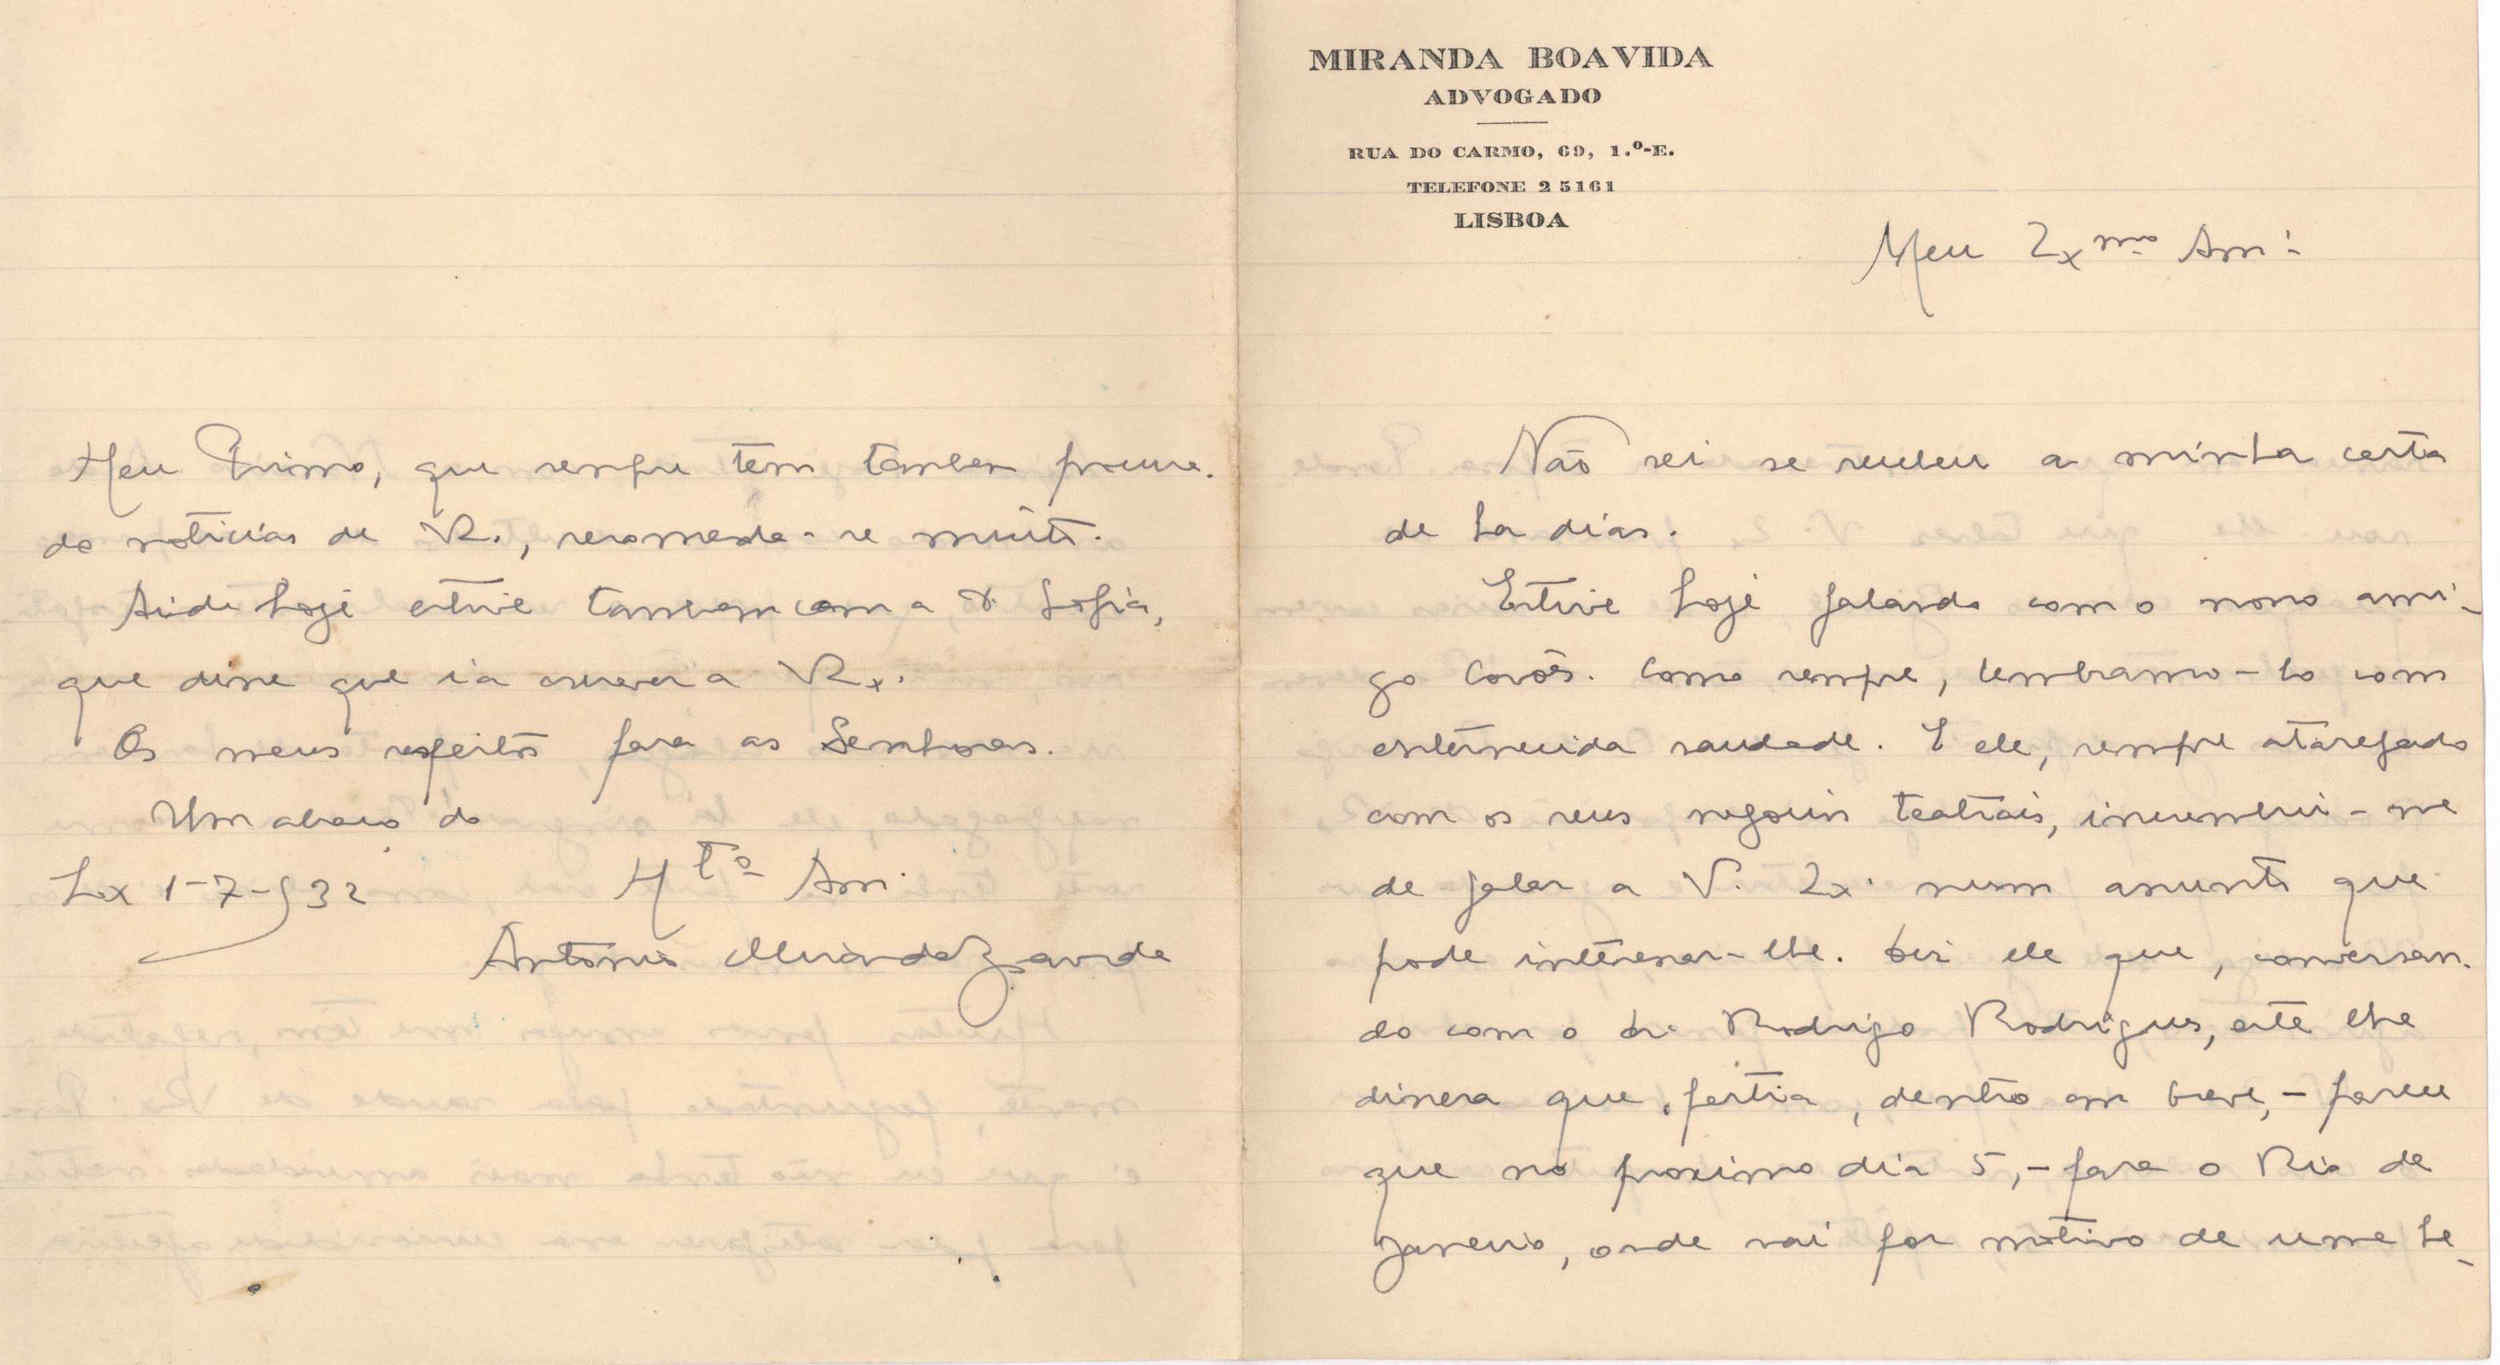 MIRANDA BOAVIDA
ADVOGADO
RUA DO CARMO, 69, 1.º-E.
TELEFONE 2 5161
LISBOA
Meu Exmo Amº
Não sei se recebeu a minha carta
de ha dias.
Estive hoje falando com o nosso ami-
go Covões. Como sempre, lembramo-lo com
enternecida saudade. E ele, sempre atarefado
com os seus negocios teatrais, incumbiu-me
de falar a V. Ex. num assunto que
pode interessar-lhe. Diz ele que, conversan-
do com o dr. Rodrigo Rodrigues, este lhe
dissera que partia, dentro em breve, - parece
que no proximo dia 5, - para o Rio de
Janeiro, onde vai por motivo de uma he-
Meu Primo, que sempre tem tambem procura-
do noticias de V. , recomenda-se muito.
Ainda hoje estive tambem com a D. Sofia,
que disse que ia escrever a V. Ex.
Os meus respeitos para as Senhoras.
Um abraço do
Lx 1-7-932 Mto Amº
Antonio Miranda Boavida